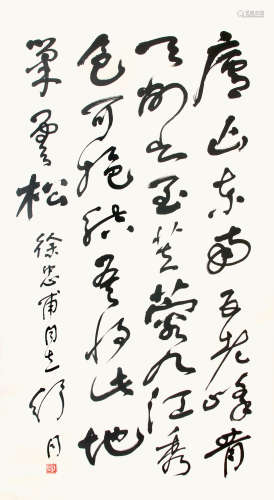 庐山东南五老峰青
天削出金芙蓉九江秀
色可揽结吾将此地
巢云松
徐忠甫同志 舒同